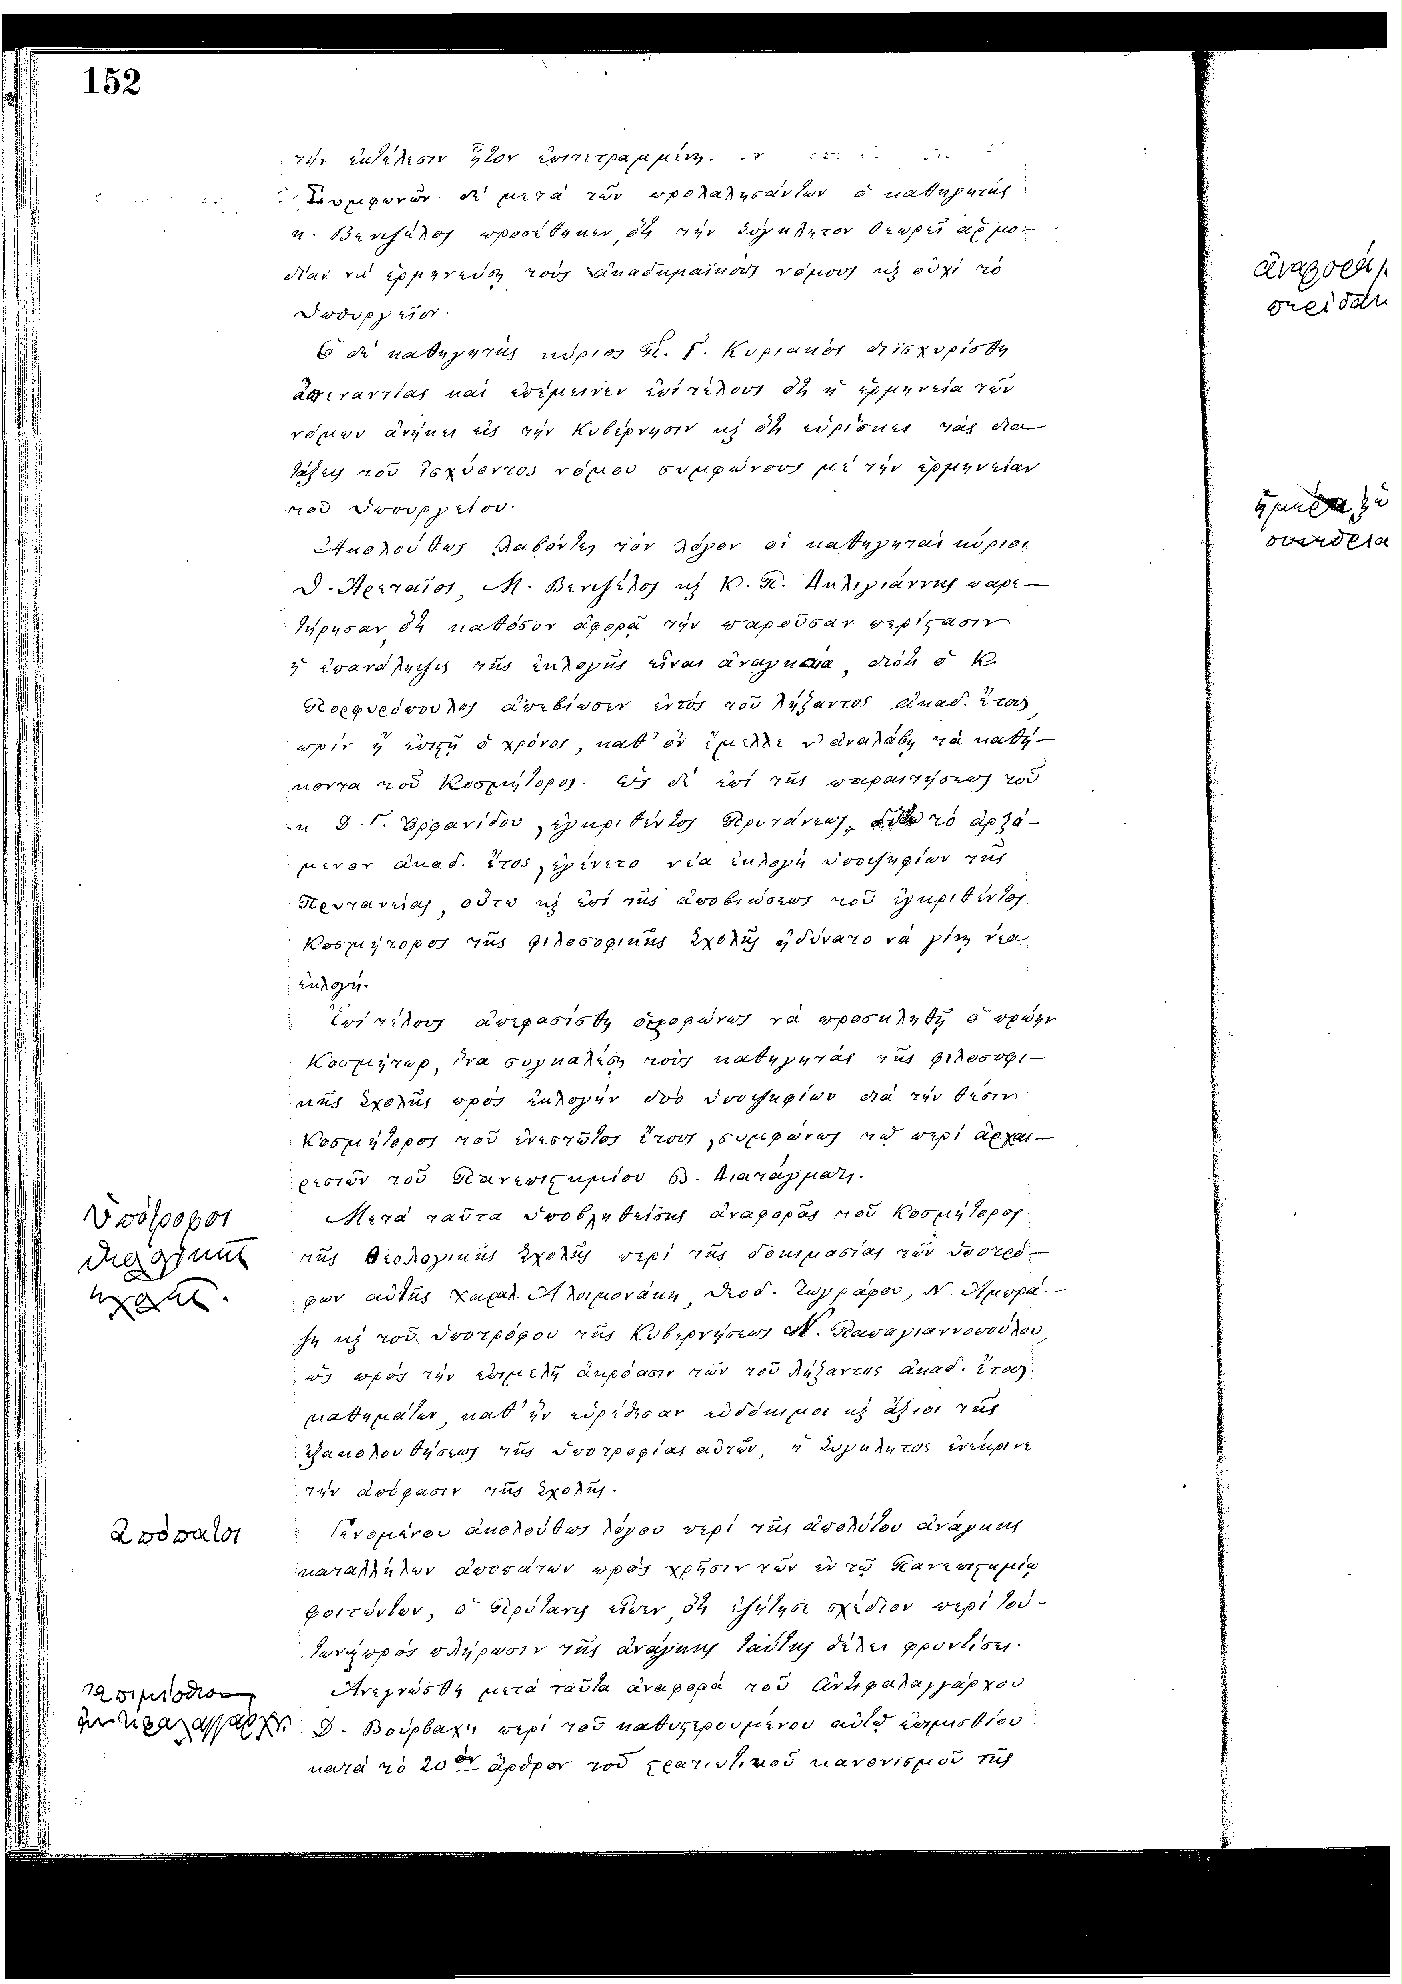 152
τὴν ἐκτέλεσιν ἦτον ἐπιτετραμμένη.
Συμφωνῶν δὲ μετὰ τῶν προλαλησάντων ὁ καθηγητὴς
κ. Βενιζέλος προσέθηκεν, ὅτι τὴν Σύγκλητον θεωρεῖ ἁρμο-
δίαν νὰ ἑρμηνεύσῃ τοὺς ἀκαδημαϊκοὺς νόμους κὶ οὐχὶ τὸ
Ὑπουργεῖον.
Ὁ δὲ καθηγητὴς κύριος Π. Γ. Κυριακὸς διϊσχυρίσθη
ἀπεναντίας καὶ ἐπέμεινεν ἐπὶ τέλους ὅτι ἡ ἑρμηνεία τῶν
νόμων ἀνήκει εἰς τὴν Κυβέρνησιν κὶ ὅτι εὑρίσκει τὰς δια-
τάξεις τοῦ ἰσχύοντος νόμου συμφώνους μὲ τὴν ἑρμηνείαν
τοῦ Ὑπουργείου.
Ἀκολούθως λαβόντες τὸν λόγον οἱ καθηγηταὶ κύριοι
Θ. Ἀρεταῖος, Μ. Βενιζέλος κὶ Κ. Π. Δηλιγιάννης παρε-
τήρησαν, ὅτι καθόσον ἀφορᾷ τὴν παροῦσαν περίστασιν
ἡ ἐπανάληψις τῆς ἐκλογῆς εἶναι ἀναγκαία, διότι ὁ Κ.
Πορφυρόπουλος ἀπεβίωσεν ἐντὸς τοῦ λήξαντος ἀκαδ. ἔτους,
πρὶν ἢ ἐπιστῇ ὁ χρόνος, καθ' ὃν ἔμελλε ν' ἀναλάβῃ τὰ καθή-
κοντα τοῦ Κοσμήτορος. Ὡς δὲ ἐπὶ τῆς παραιτήσεως τοῦ
κ Θ. Γ. Ὀρφανίδου, ἐγκριθέντος Πρυτάνεως, διὰ τὸ ἀρξά-
μενον ἀκαδ. ἔτος, ἐγένετο νέα ἐκλογὴ ὑποψηφίων τῆς
Πρυτανείας, οὕτω κὶ ἐπὶ τῆς ἀποβιώσεως τοῦ ἐγκριθέντος
Κοσμήτορος τῆς φιλοσοφικῆς Σχολῆς ἠδύνατο νὰ γίνῃ νέα
ἐκλογή.
Ἐπὶ τέλους ἀπεφασίσθη ὁμοφώνως νὰ προσκληθῇ ὁ πρώην
Κοσμήτωρ, ἵνα συγκαλέσῃ τοὺς καθηγητὰς τῆς φιλοσοφι-
κῆς Σχολῆς πρὸς ἐκλογὴν δύο ὑποψηφίων διὰ τὴν θέσιν
Κοσμήτορος τοῦ ἐνεστῶτος ἔτους, συμφώνως τῷ περὶ ἀρχαι-
ρεσιῶν τοῦ Πανεπιστημίου Β. Διατάγματι.
Ὑπότροφοι
θεολογικῆς
σχολῆς.
Μετὰ ταῦτα ὑποβληθείσης ἀναφορᾶς τοῦ Κοσμήτορος
τῆς Θεολογικῆς Σχολῆς περὶ τῆς δοκιμασίας τῶν ὑποτρό-
φων αὐτῆς Χαραλ. Ἀλοιμονάκη, Θεοδ. Ζωγράφου, Ν. Ἀμπρά-
ζη κὶ τοῦ ὑποτρόφου τῆς Κυβερνήσεως Ν. Παπαγιαννοπούλου,
ὡς πρὸς τὴν ἐπιμελῆ ἀκρόασιν τῶν τοῦ λήξαντος ἀκαδ. ἔτους
μαθημάτων, καθ' ἣν εὑρέθησαν εὐδόκιμοι κὶ ἄξιοι τῆς
ἐξακολουθήσεως τῆς ὑποτροφίας αὐτῶν, ἡ Σύγκλητος ἐνέκρινε
τὴν ἀπόφασιν τῆς Σχολῆς.
Ἀπόπατοι
Γενομένου ἀκολούθως λόγου περὶ τῆς ἀπολύτου ἀνάγκης
καταλλήλων ἀποπάτων πρὸς χρῆσιν τῶν ἐν τῷ Πανεπιστημίῳ
φοιτώντων, ὁ Πρύτανις εἶπεν, ὅτι ἐζήτησε σχέδιον περὶ τού-
των κὶ πρὸς πλήρωσιν τῆς ἀνάγκης ταύτης θέλει φροντίσει.
ἐπιμίσθιον
ἀντιφαλαγγάρχου
Ἀνεγνώσθη μετὰ ταῦτα ἀναφορὰ τοῦ ἀντιφαλαγγάρχου
Δ. Βούρβαχη περὶ τοῦ καθυστερουμένου αὐτῷ ἐπιμισθίου
κατὰ τὸ 20ὸν ἄρθρον τοῦ στρατιωτικοῦ κανονισμοῦ τῆς